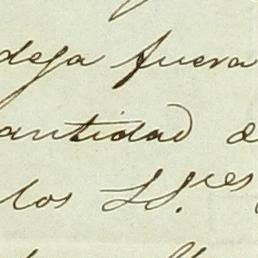 deja fuera
antidad d
los SS.res